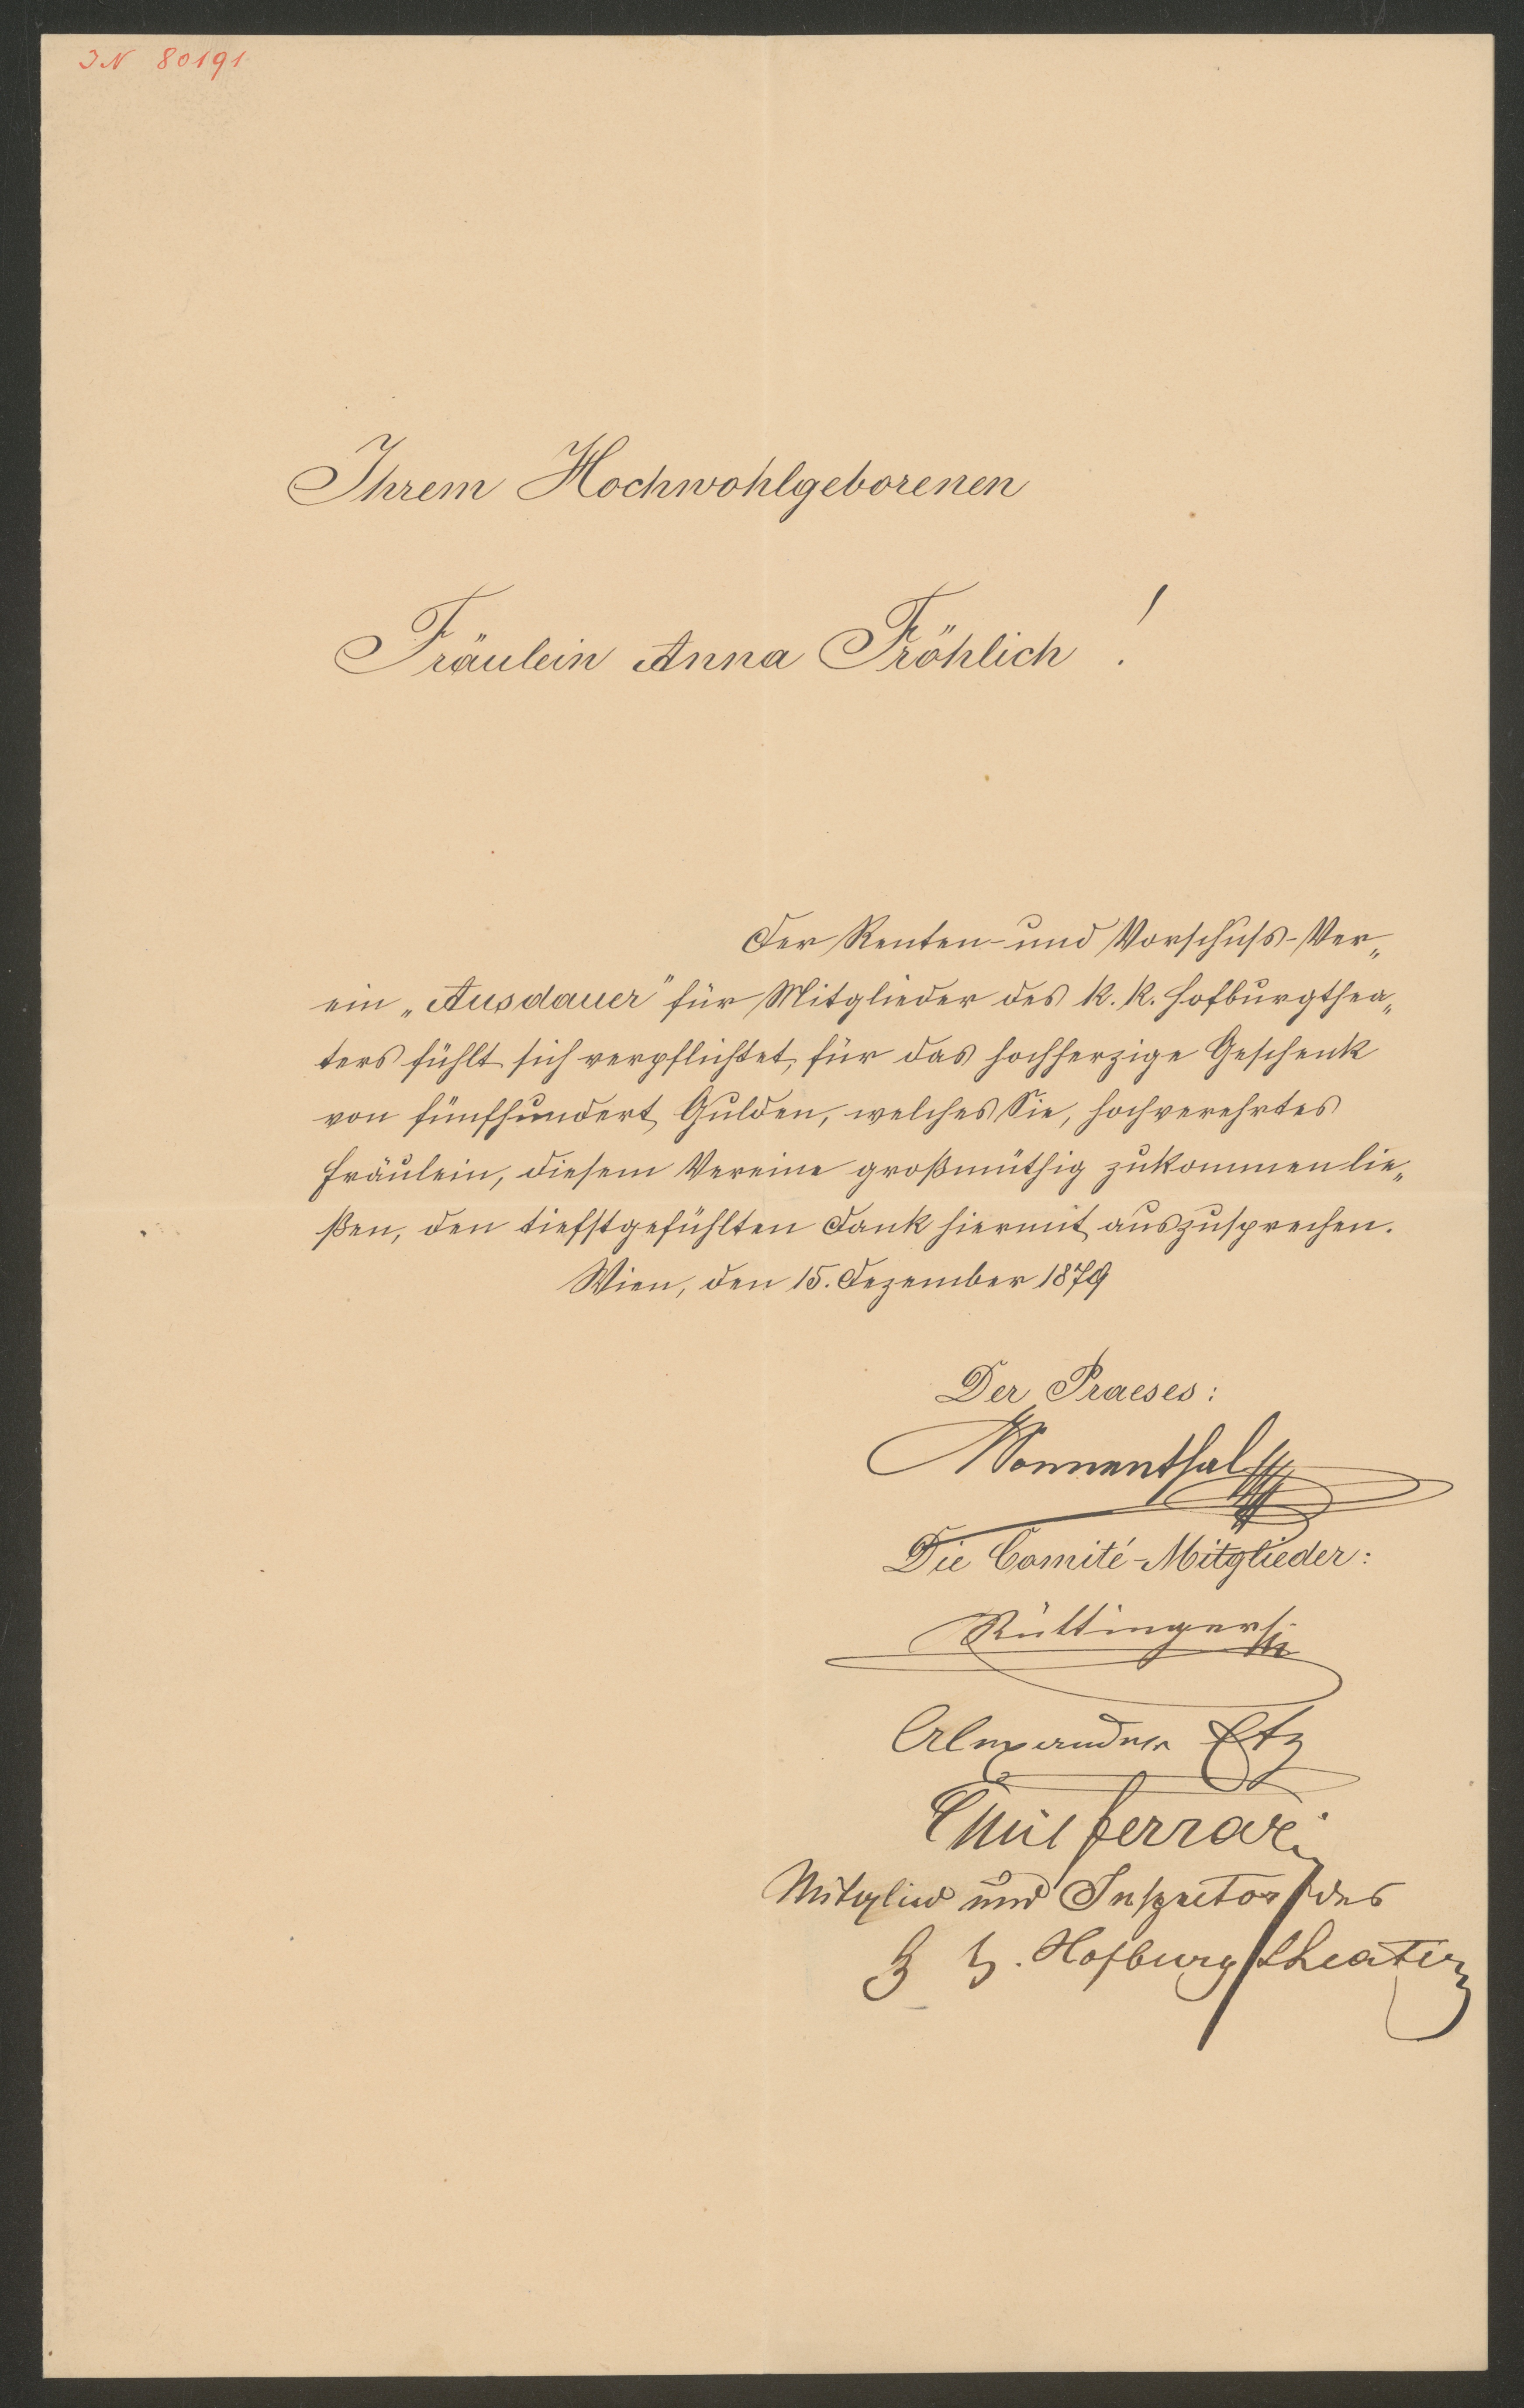 IN 80191
Ihrem Hochwohlgeborenen
Fräulein Anna Fröhlich !
Der Renten- und Vorschuss-Ver„
ein „Ausdauer" für Mitglieder des k. k. Hofburgthea„
ters fühlt sich verpflichtet, für das hochherzige Geschenk
von fünfhundert Gulden, welches Sie, hochverehrtes
Fräulein, diesem Vereine großmüthig zukommen lie„
ßen, den tiefstgefühlten Dank hiermit auszusprechen.
Wien, den 15. Dezember 1879
Der Praeses:
Sonnenthal
Die Comité-Mitglieder:
Rüttinger
Alexander Etz
Emil Ferrari
Mitglied und Inspector des
k k. Hofburgtheater